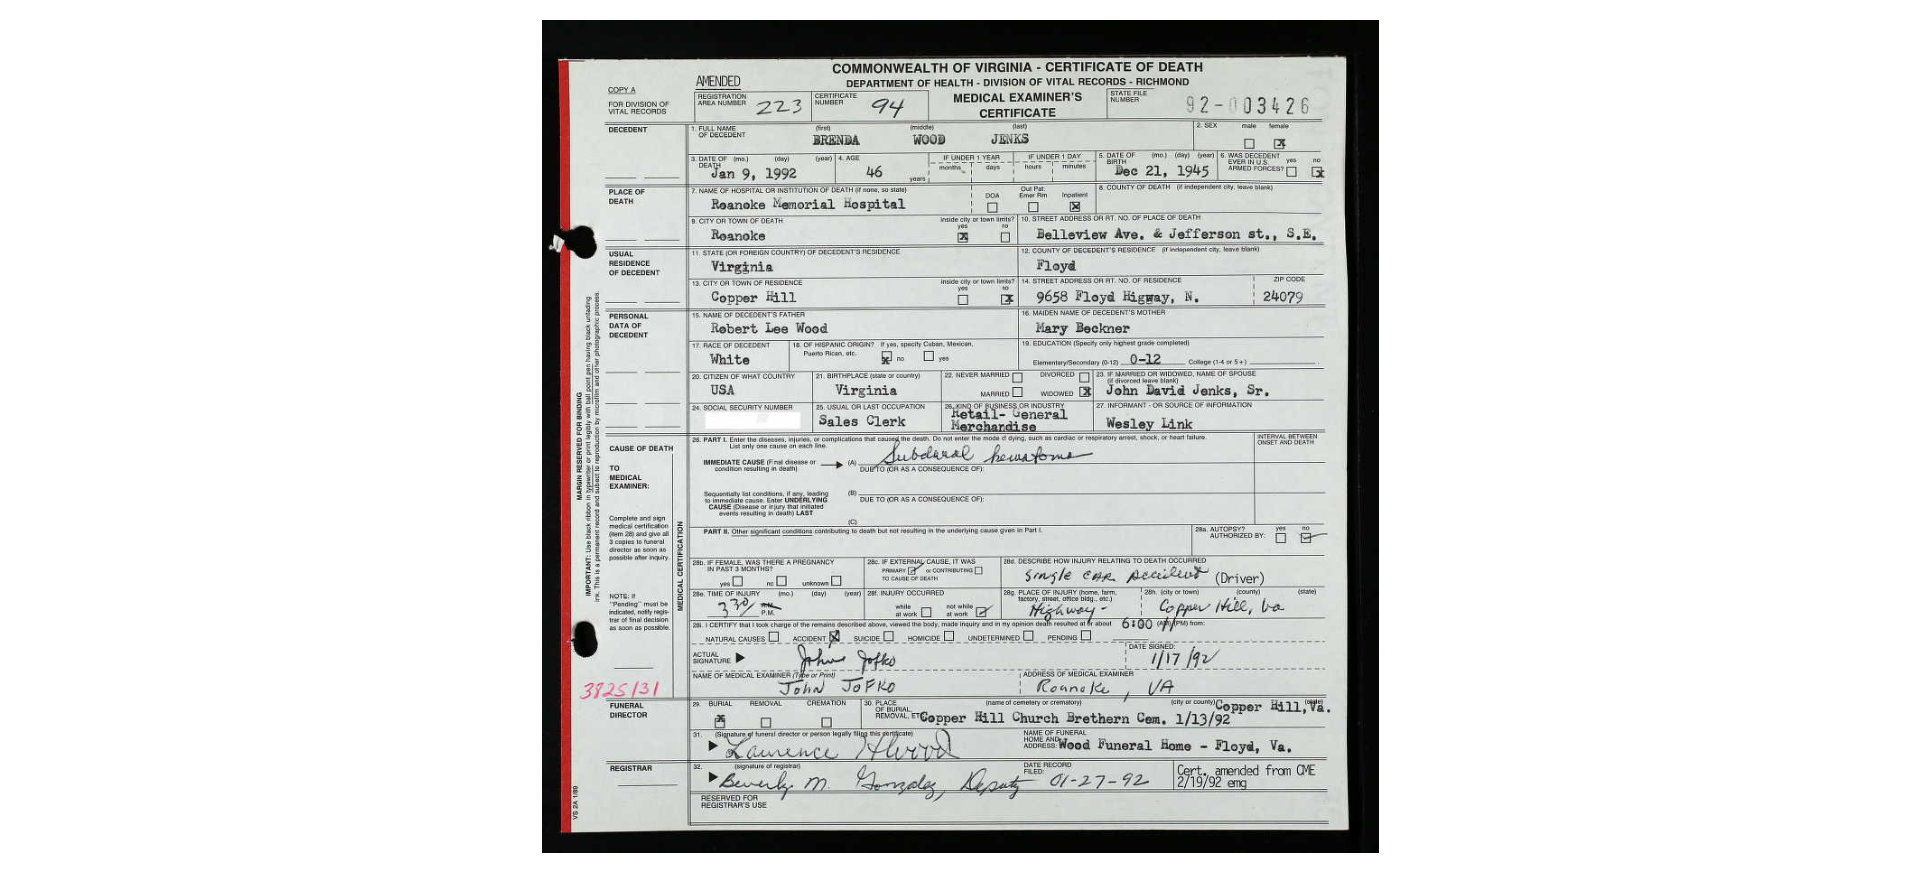 COMMONWEALTH OF VIRGINIA - CERTIFICATE OF DEATH
DEPARTMENT OF HEALTH - DIVISION OF VITAL RECORDS - RICHMOND
AMENDED
COPY A
FOR DIVISION OF VITAL RECORDS
REGISTRATION AREA NUMBER 223
CERTIFICATE NUMBER 94
MEDICAL EXAMINER'S CERTIFICATE
STATE FILE NUMBER 92-003426
DECEDENT
1. FULL NAME OF DECEDENT (first) (middle) (last)
BRENDA WOOD JENKS
2. SEX male female X
3. DATE OF DEATH (mo.) (day) (year) Jan 9, 1992
4. AGE 46 years
IF UNDER 1 YEAR months days
IF UNDER 1 DAY hours minutes
5. DATE OF BIRTH (mo.) (day) (year) Dec 21, 1945
6. WAS DECEDENT EVER IN U.S. ARMED FORCES? yes no X
PLACE OF DEATH
7. NAME OF HOSPITAL OR INSTITUTION OF DEATH (if none, so state)
Roanoke Memorial Hospital
DOA Out Pat. Emer Rm Inpatient X
8. COUNTY OF DEATH (if independent city, leave blank)
9. CITY OR TOWN OF DEATH inside city or town limits? yes X no
Roanoke
10. STREET ADDRESS OR RT. NO. OF PLACE OF DEATH
Belleview Ave. & Jefferson st., S.E.
USUAL RESIDENCE OF DECEDENT
11. STATE (OR FOREIGN COUNTRY) OF DECEDENT'S RESIDENCE
Virginia
12. COUNTY OF DECEDENT'S RESIDENCE (if independent city, leave blank)
Floyd
13. CITY OR TOWN OF RESIDENCE inside city or town limits? yes no X
Copper Hill
14. STREET ADDRESS OR RT. NO. OF RESIDENCE ZIP CODE
9658 Floyd Higway, N. 24079
PERSONAL DATA OF DECEDENT
15. NAME OF DECEDENT'S FATHER
Robert Lee Wood
16. MAIDEN NAME OF DECEDENT'S MOTHER
Mary Beckner
17. RACE OF DECEDENT
White
18. OF HISPANIC ORIGIN? If yes, specify Cuban, Mexican, Puerto Rican, etc. X no yes
19. EDUCATION (Specify only highest grade completed)
Elementary/Secondary (0-12) 0-12 College (1-4 or 5+)
20. CITIZEN OF WHAT COUNTRY
USA
21. BIRTHPLACE (state or country)
Virginia
22. NEVER MARRIED DIVORCED MARRIED WIDOWED X
23. IF MARRIED OR WIDOWED, NAME OF SPOUSE (if divorced leave blank)
John David Jenks, Sr.
24. SOCIAL SECURITY NUMBER
25. USUAL OR LAST OCCUPATION
Sales Clerk
26. KIND OF BUSINESS OR INDUSTRY
Retail- General Merchandise
27. INFORMANT - OR SOURCE OF INFORMATION
Wesley Link
CAUSE OF DEATH
TO MEDICAL EXAMINER:
Complete and sign medical certification (item 28) and give all 3 copies to funeral director as soon as possible after inquiry.
NOTE: If "Pending" must be indicated, notify registrar of final decision as soon as possible.
MEDICAL CERTIFICATION
28. PART I. Enter the diseases, injuries, or complications that caused the death. Do not enter the mode if dying, such as cardiac or respiratory arrest, shock, or heart failure. List only one cause on each line.
INTERVAL BETWEEN ONSET AND DEATH
IMMEDIATE CAUSE (Final disease or condition resulting in death) (A) Subdural hematoma
DUE TO (OR AS A CONSEQUENCE OF):
Sequentially list conditions, if any, leading to immediate cause. Enter UNDERLYING CAUSE (Disease or injury that initiated events resulting in death) LAST
(B)
DUE TO (OR AS A CONSEQUENCE OF):
(C)
PART II. Other significant conditions contributing to death but not resulting in the underlying cause given in Part I.
28a. AUTOPSY? AUTHORIZED BY: yes no
28b. IF FEMALE, WAS THERE A PREGNANCY IN PAST 3 MONTHS? yes no unknown
28c. IF EXTERNAL CAUSE, IT WAS PRIMARY or CONTRIBUTING TO CAUSE OF DEATH
28d. DESCRIBE HOW INJURY RELATING TO DEATH OCCURRED
Single CAR Accident (Driver)
28e. TIME OF INJURY (mo.) (day) (year)
330 A.M. P.M.
28f. INJURY OCCURRED while at work not while at work
28g. PLACE OF INJURY (home, farm, factory, street, office bldg., etc.)
Highway-
28h. (city or town) (county) (state)
Copper Hill, Va
28i. I CERTIFY that I took charge of the remains described above, viewed the body, made inquiry and in my opinion death resulted at or about 6:00 (AM)(PM) from:
NATURAL CAUSES ACCIDENT X SUICIDE HOMICIDE UNDETERMINED PENDING
ACTUAL SIGNATURE John Jofko
DATE SIGNED: 1/17/92
NAME OF MEDICAL EXAMINER (Type or Print)
JOHN JOFKO
ADDRESS OF MEDICAL EXAMINER
Roanoke, VA
3825/31
FUNERAL DIRECTOR
29. BURIAL X REMOVAL CREMATION
30. PLACE OF BURIAL, REMOVAL, ETC (name of cemetery or crematory) (city or county) (state)
Copper Hill Church Brethern Cem. 1/13/92 Copper Hill, Va.
31. (Signature of funeral director or person legally filing this certificate)
Laurence H Wood
NAME OF FUNERAL HOME AND ADDRESS: Wood Funeral Home - Floyd, Va.
REGISTRAR
32. (signature of registrar)
Beverly M. Gonzalez, Deputy
DATE RECORD FILED: 01-27-92
Cert. amended from CME 2/19/92 emg
RESERVED FOR REGISTRAR'S USE
VS 2A 1/89
MARGIN RESERVED FOR BINDING
IMPORTANT: Use black ribbon in typewriter or print legibly with ball point pen having black unfading ink. This is a permanent record and subject to reproduction by microfilm and other photographic process.